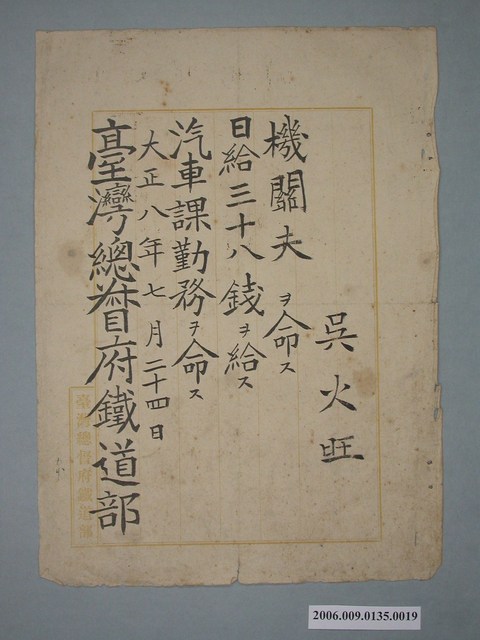 吳火旺
機關夫ヲ命ス
日給三十八錢ヲ給ス
汽車課勤務ヲ命ス
大正八年七月二十四日
臺灣總督府鐵道部
臺灣總督府鐵道部
2006.009.0135.0019